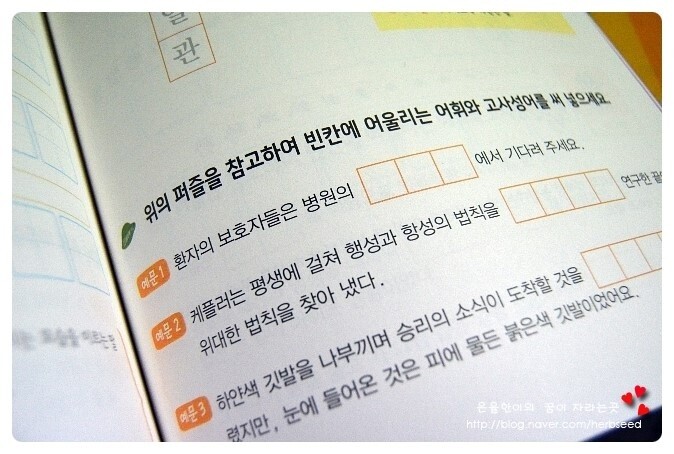 관
위의 퍼즐을 참고하여 빈칸에 어울리는 어휘와 고사성어를 써 넣으세요.
예문 1 환자의 보호자들은 병원의 에서 기다려 주세요.
예문 2 케플러는 평생에 걸쳐 행성과 항성의 법칙을 연구한 끝
위대한 법칙을 찾아 냈다.
예문 3 하얀색 깃발을 나부끼며 승리의 소식이 도착할 것을
렸지만, 눈에 들어온 것은 피에 물든 붉은색 깃발이었어요.
꿈이 자라는곳
http://blog.naver.com/herbseed